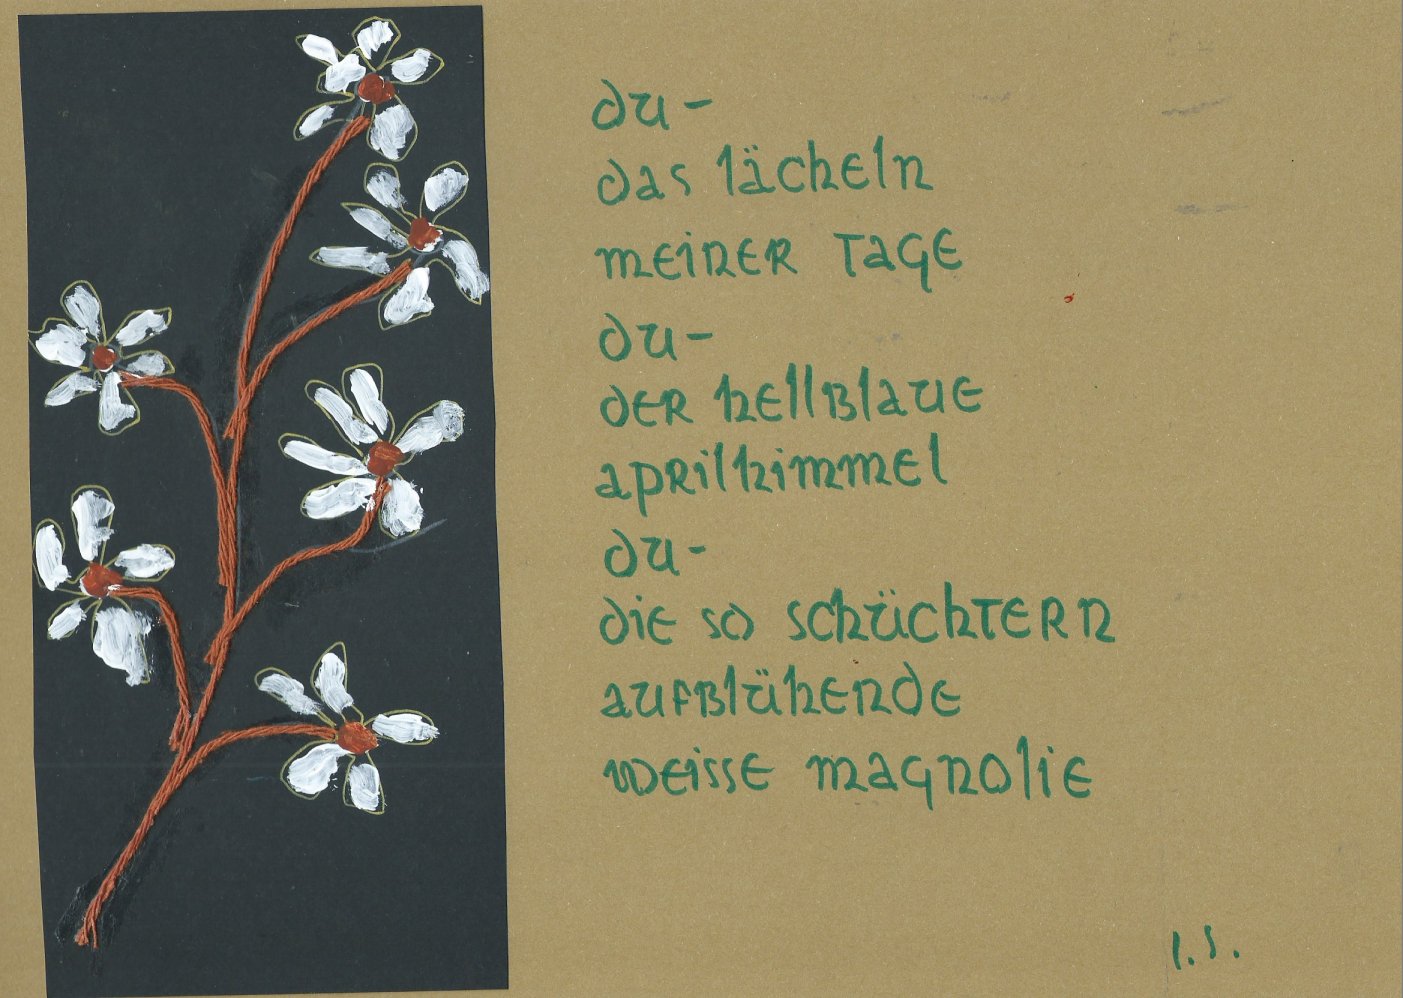 du-
das lächeln
meiner Tage
du-
der hellblaue
aprilhimmel
du-
die so schüchtern
aufblühende
weisse magnolie
I.S.